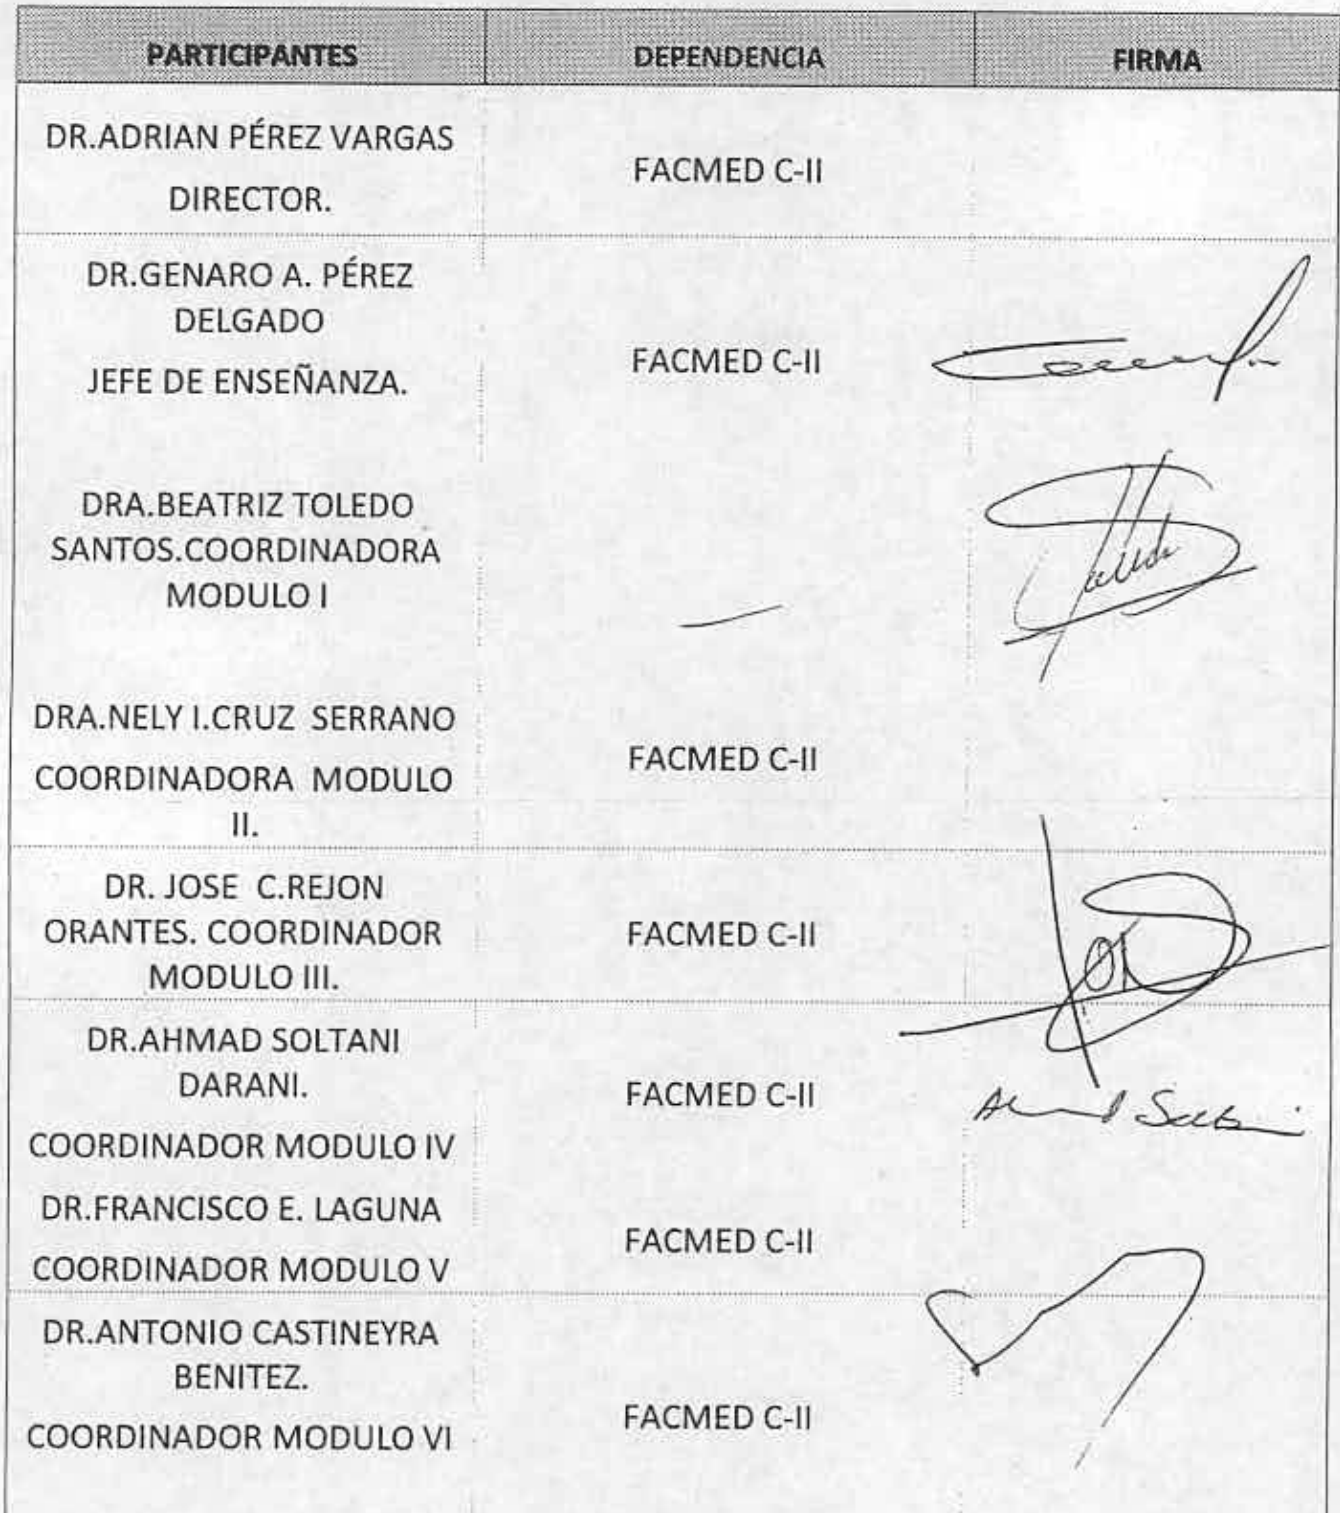 PARTICIPANTES DEPENDENCIA FIRMA
DR.ADRIAN PÉREZ VARGAS
DIRECTOR.
FACMED C-II
DR.GENARO A. PÉREZ
DELGADO
JEFE DE ENSEÑANZA.
FACMED C-II
DRA.BEATRIZ TOLEDO
SANTOS.COORDINADORA
MODULO I
DRA.NELY I.CRUZ SERRANO
COORDINADORA MODULO
II.
FACMED C-II
DR. JOSE C.REJON
ORANTES. COORDINADOR
MODULO III.
FACMED C-II
DR.AHMAD SOLTANI
DARANI.
COORDINADOR MODULO IV
FACMED C-II
DR.FRANCISCO E. LAGUNA
COORDINADOR MODULO V
FACMED C-II
DR.ANTONIO CASTINEYRA
BENITEZ.
COORDINADOR MODULO VI
FACMED C-II